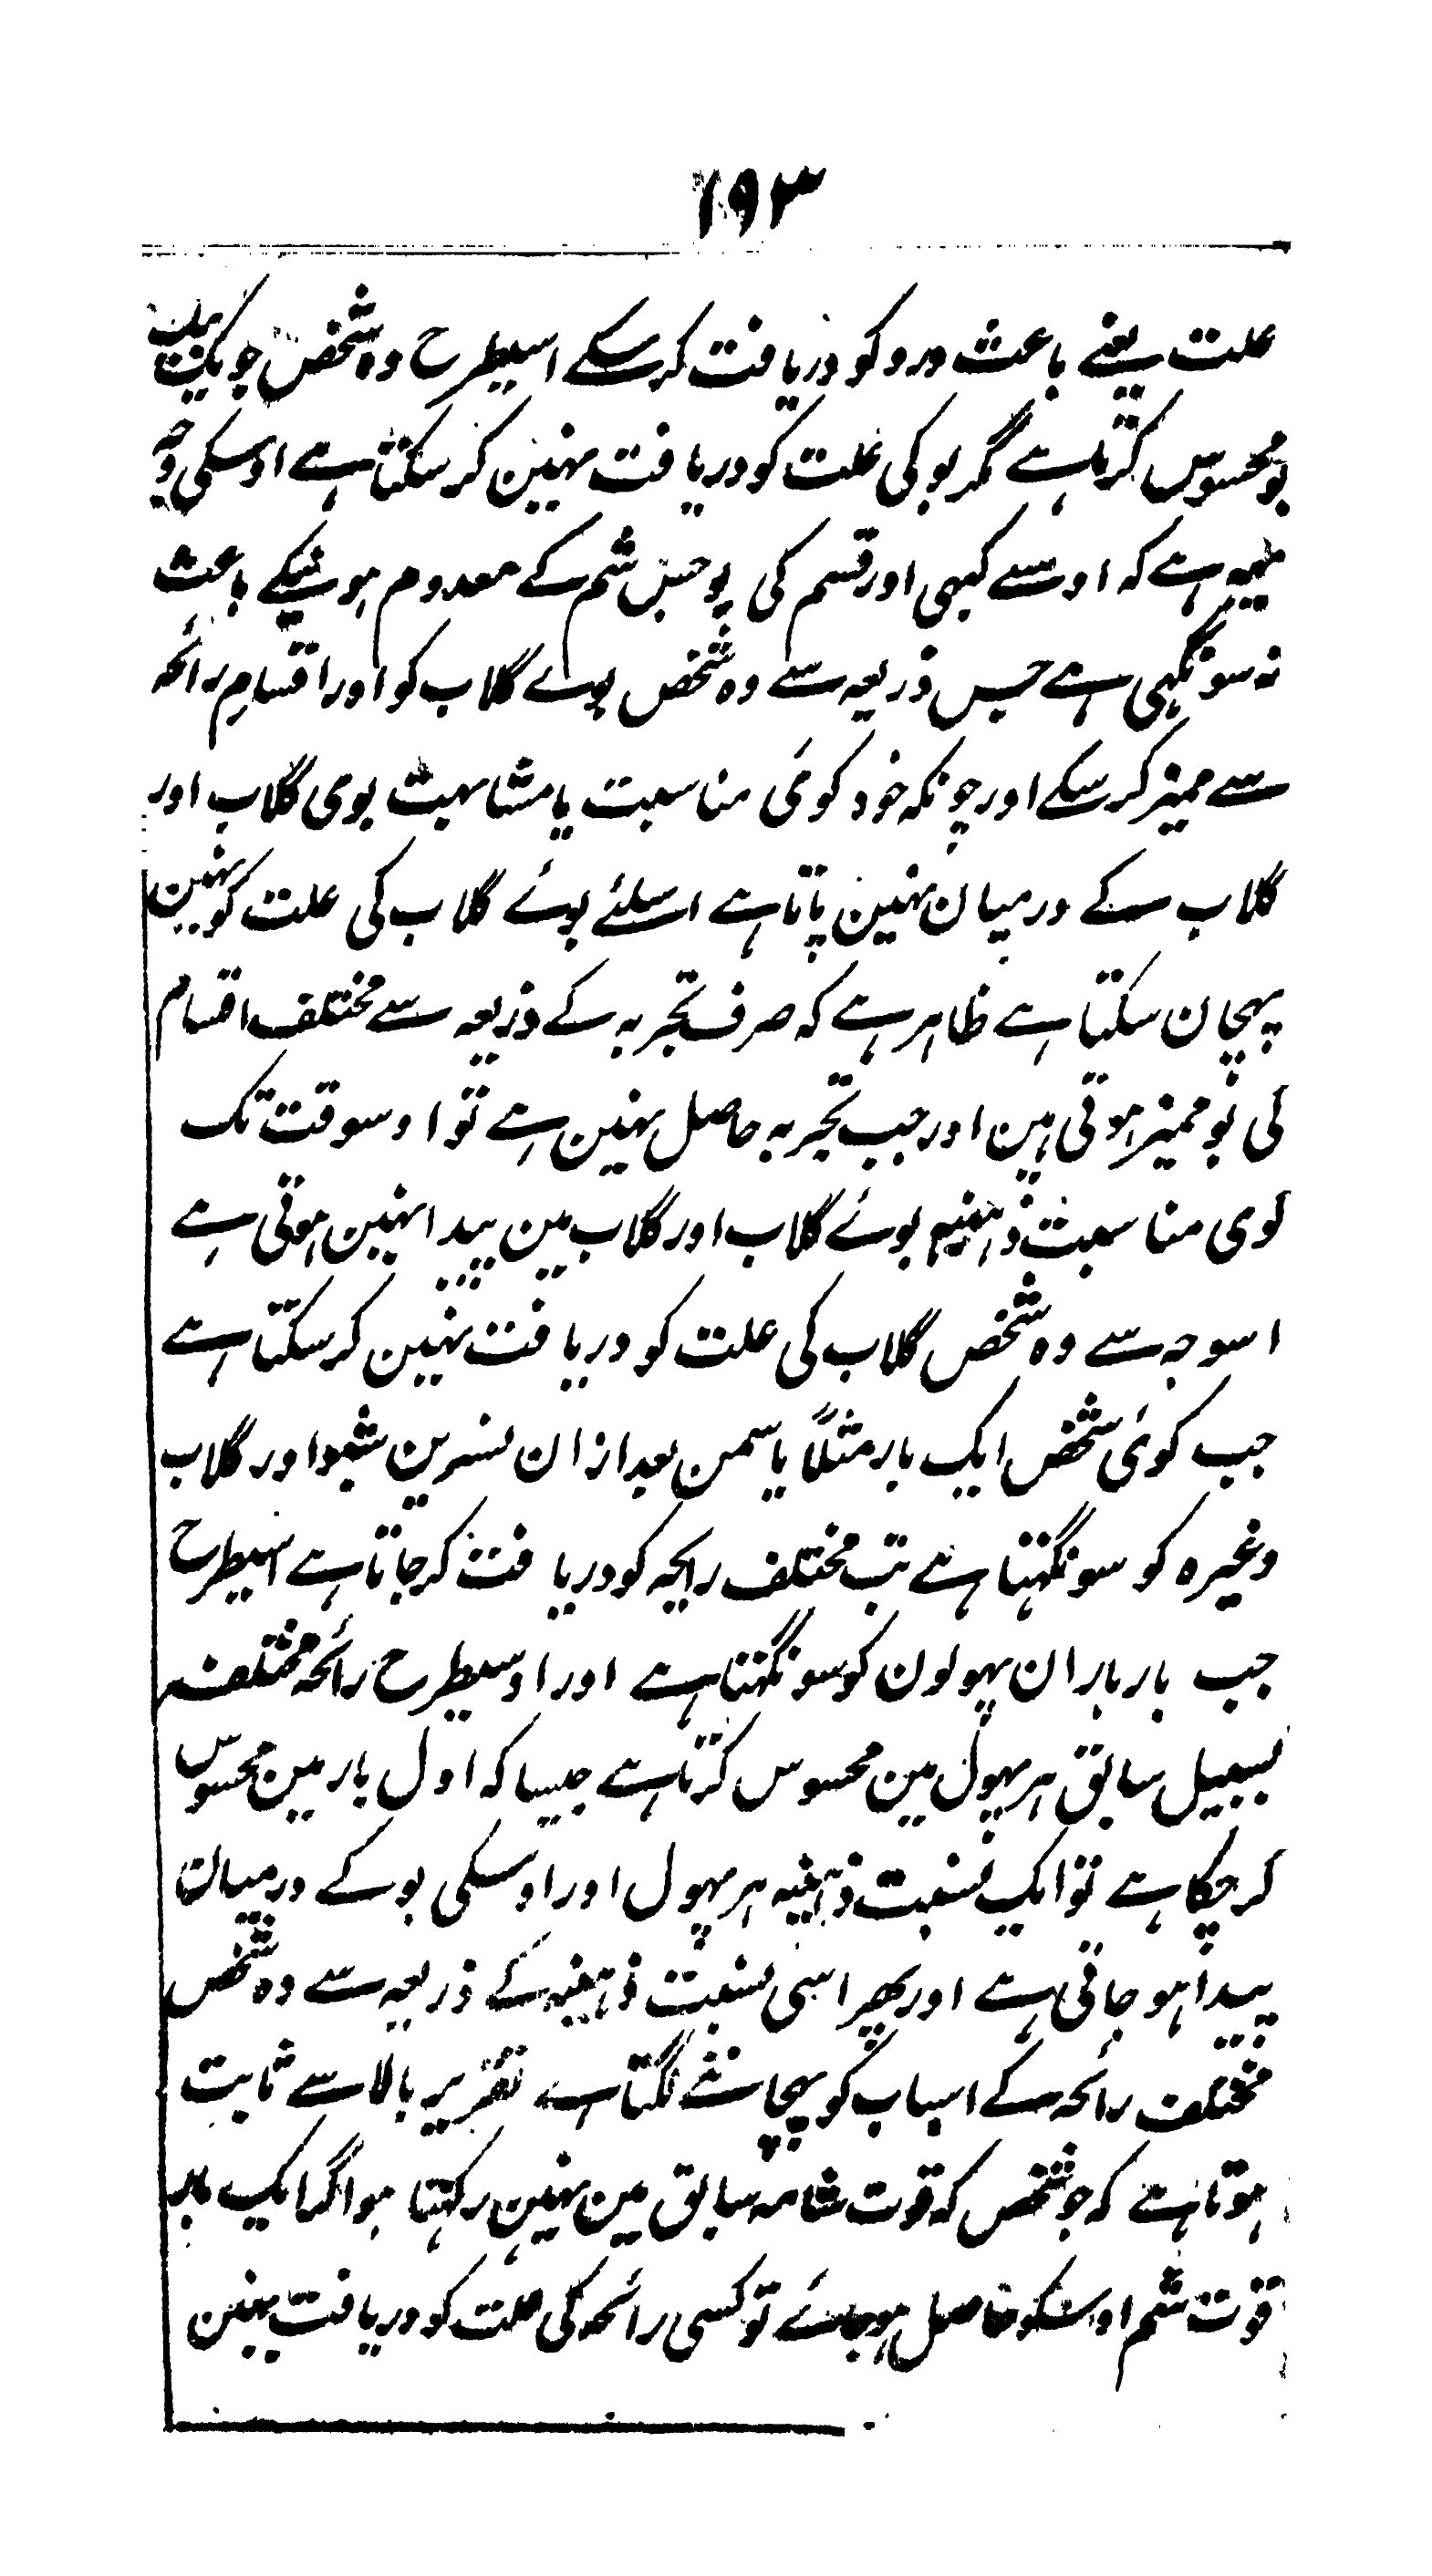 ۱۹۳
علت یعنے باعث درد کو دریافت کرسکے اسیطرح وہ شخص جو یک بیک
بو محسوس کرتا ہے مگر بو کی علت کو دریافت نہین کرسکتا ہے اوسکی وجہ
یہہ ہے کہ اوسے کبہی اور قسم کی بو حس شم کے معدوم ہونیکے باعث
نہ سونگہی ہے جس ذریعہ سے وہ شخص بوے گلاب کو اور اقسامِ رائحہ
سے ممیز کرسکے اور چونکہ خود کوئی مناسبت یا مشابہت بوی گلاب اور
گلاب کے درمیان نہین پاتا ہے اسلئے بوئے گلاب کی علت کو نہین
پہچان سکتا ہے ظاہر ہے کہ صرف تجربہ کے ذریعہ سے مختلف اقسام
کی بو ممیز ہوتی ہین اور جب تجربہ حاصل نہین ہے تو اوسوقت تک
کوی مناسبت ذہنیہ بوئے گلاب اور گلاب مین پیدا نہین ہوتی ہے
اسوجہ سے وہ شخص گلاب کی علت کو دریافت نہین کرسکتا ہے
جب کوئی شخص ایک بار مثلاً یاسمن بعد ازان نسرین شبو اور گلاب
وغیرہ کو سونگہتا ہے تب مختلف رایحہ کو دریافت کرجاتا ہے اسیطرح
جب بار بار ان پہولون کو سونگہتا ہے اور اوسیطرح رائحہ مختلف
بسبیل سابق ہر پہول مین محسوس کرتا ہے جیسا کہ اول بار مین محسوس
کرچکا ہے تو ایک نسبت ذہنیہ ہر پہول اور اوسکی بو کے درمیان
پیدا ہو جاتی ہے اور پھر اسی نسبت ذہنیہ کے ذریعہ سے وہ شخص
مختلف رائحہ کے اسباب کو پہچاننے لگتا ہے تقریر بالا سے ثابت
ہوتا ہے کہ جو شخص کہ قوت شامہ سابق مین نہین رکہتا ہو اگر ایک بار
قوت شم اوسکو حاصل ہوجائے تو کسی رائحہ کی علت کو دریافت نہین